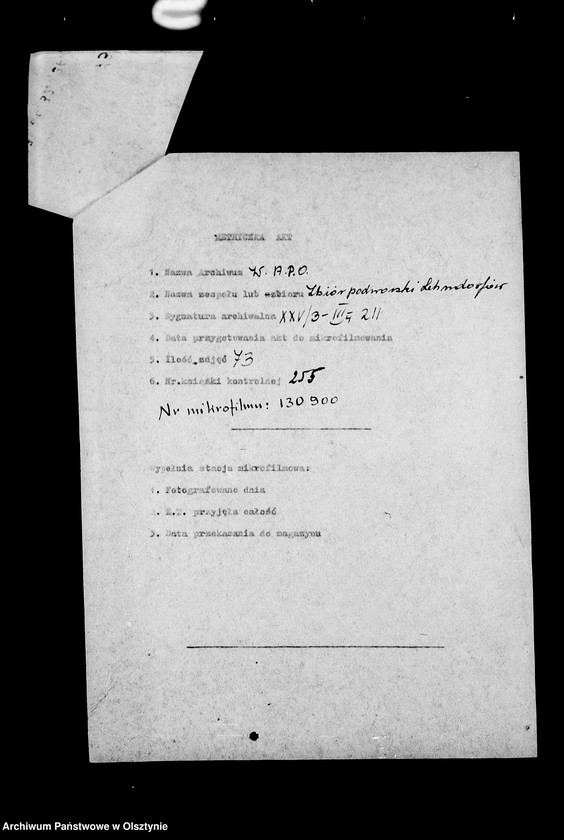 METRYCZKA AKT
1. Nazwa Archiwum W.A.P.O.
2. Nazwa zespołu lub zbioru Zbiór podworski Lehndorfów
3. Sygnatura archiwalna XXV/3-III 211
4. Data przygotowania akt do mikrofilmowania
5. Ilość zdjęć 73
6. Nr.książki kontrolnej 255
Nr mikrofilmu: 130 900
Wypełnia stacja mikrofilmowa:
1. Fotografowano dnia
2. K.T. przyjęła całość
3. Data przekazania do magazynu
Archiwum Państwowe w Olsztynie